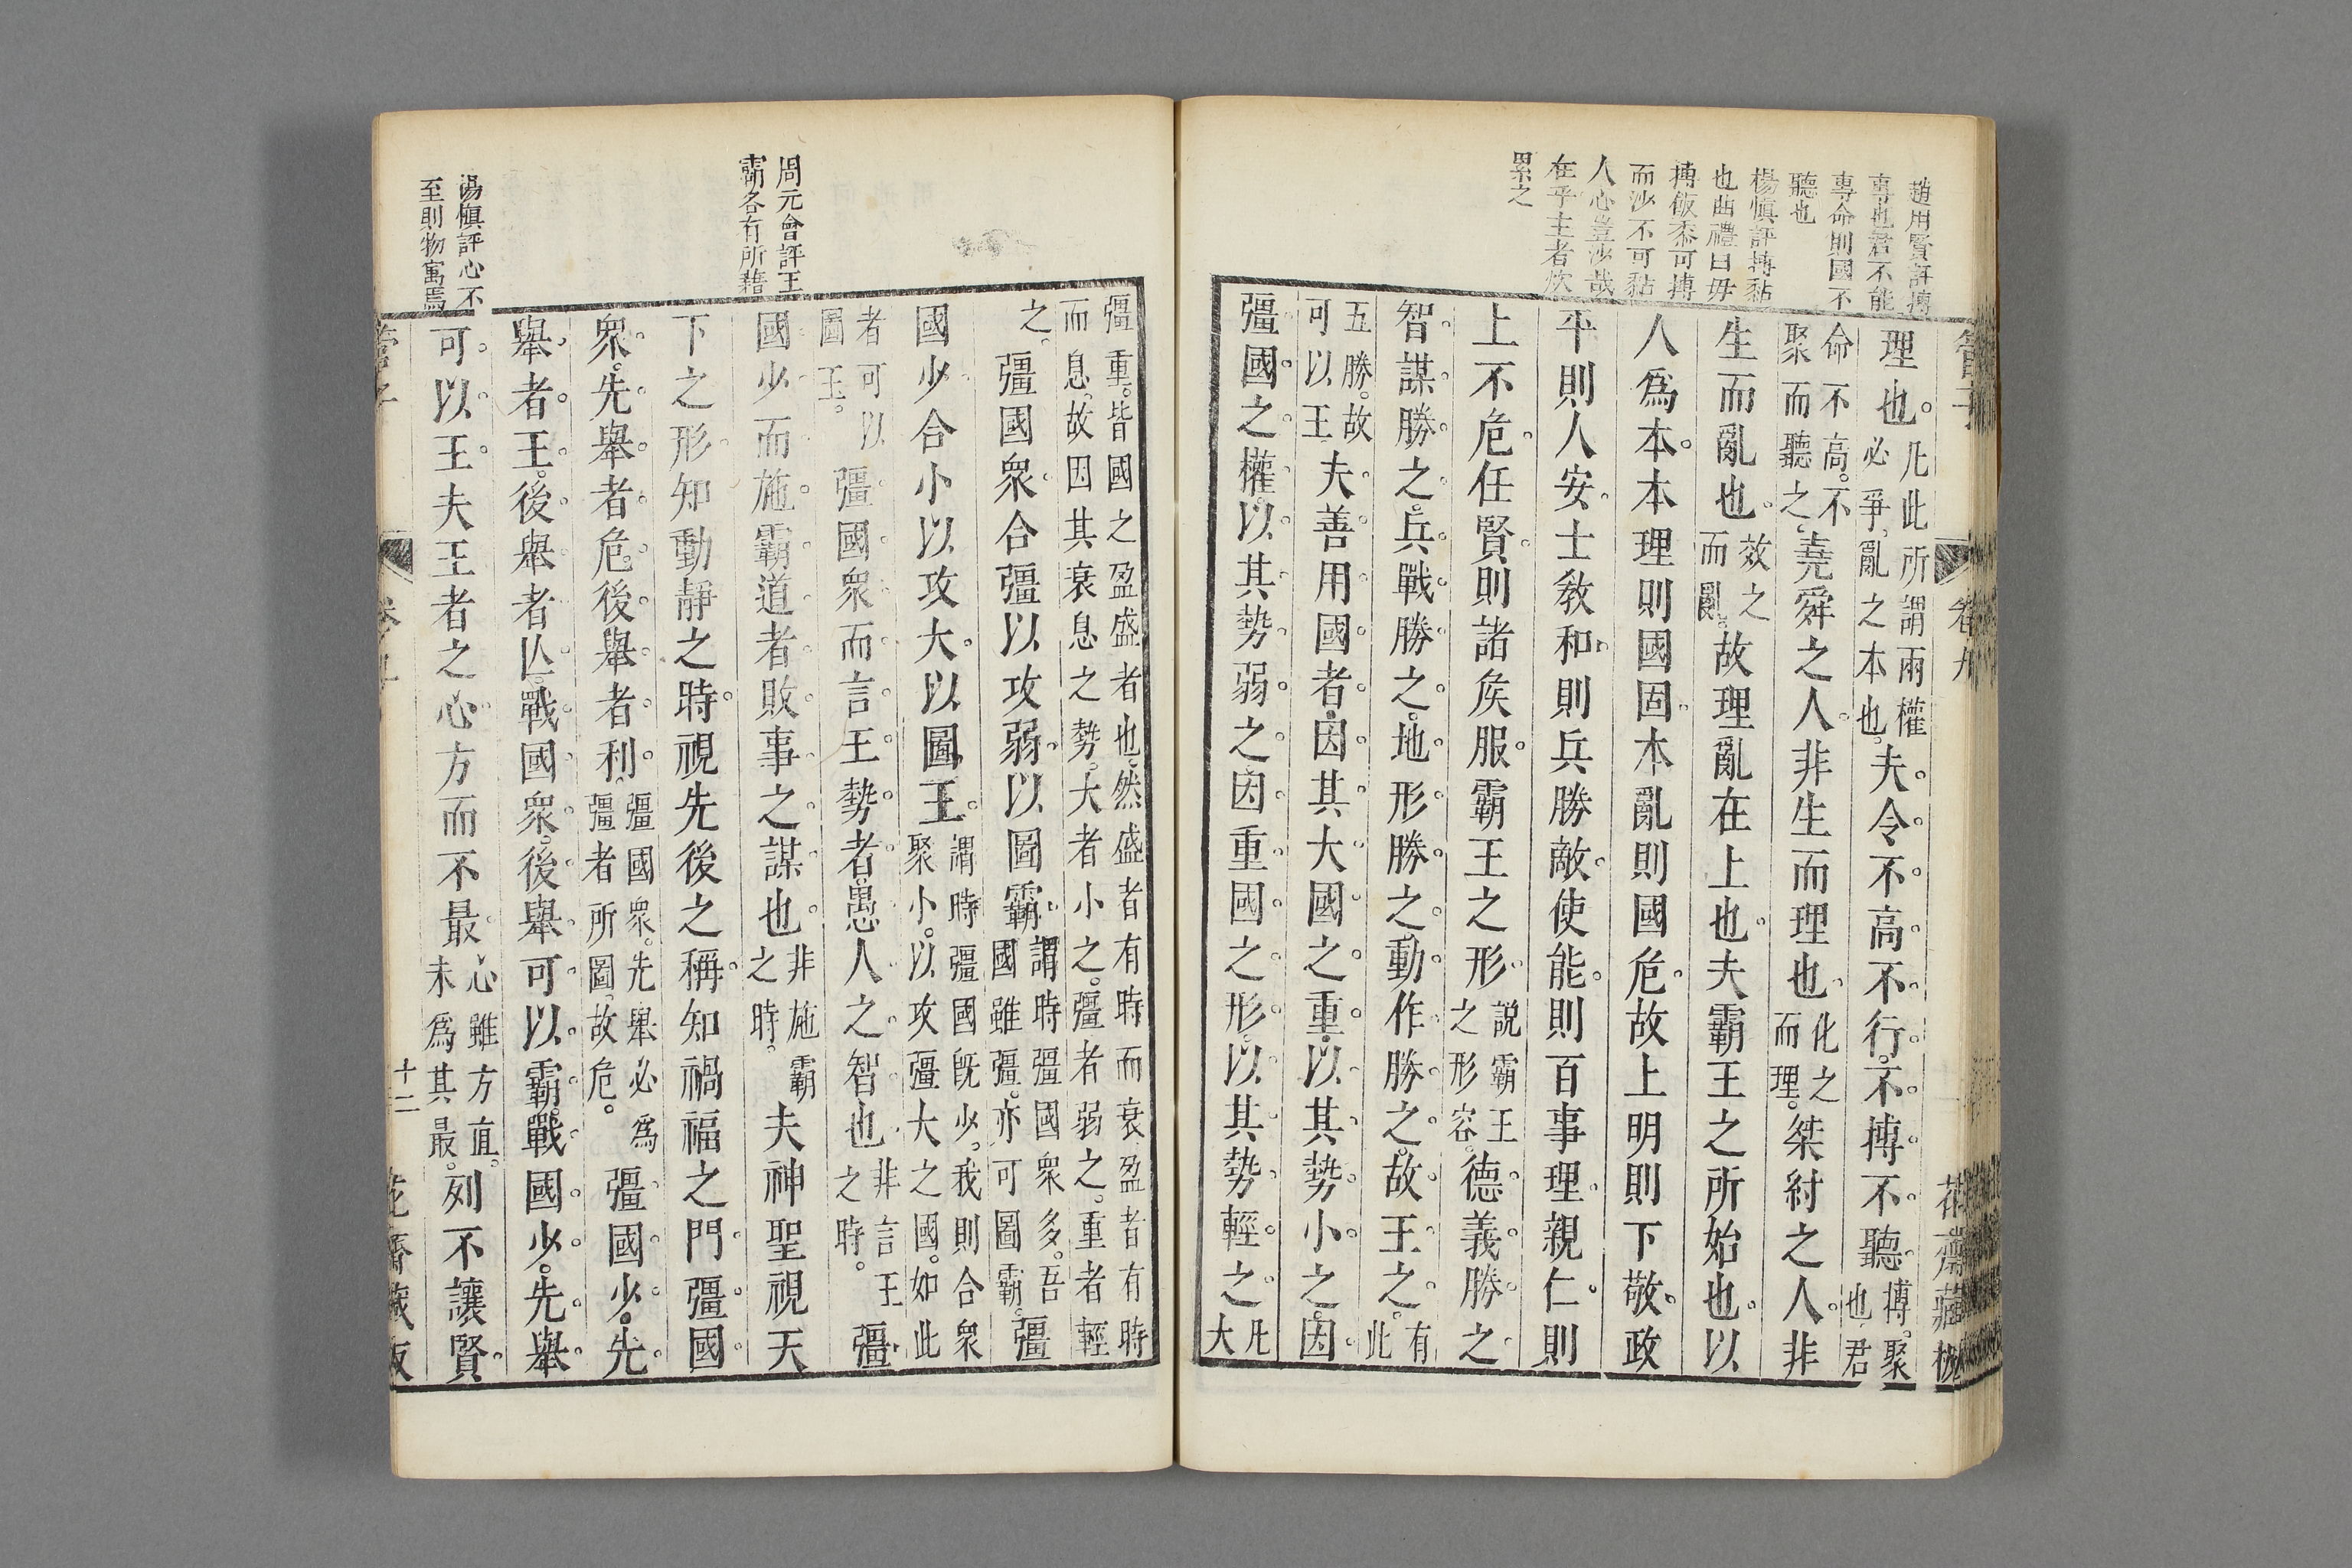 趙用賢評摶
專也君不能
專命則國不
聽也
楊慎評摶黏
也曲禮曰毋
摶飯黍可摶
而沙不可黏
人心豈沙哉
在乎主者炊
累之
管子
卷九
花齋藏板
理也。凡此所謂兩權必爭。亂之本也。夫令不高不行。不摶不聽。摶。聚也。君
命不高。不聚而聽之。堯舜之人。非生而理也。化之而理。桀紂之人。非
生而亂也。效之而亂。故理亂在上也。夫霸王之所始也。以
人爲本。本理則國固。本亂則國危。故上明則下敬。政
平則人安。士敎和。則兵勝敵。使能。則百事理。親仁。則
上不危。任賢。則諸矦服。霸王之形。說霸王之形容。德義勝之。
智謀勝之。兵戰勝之。地形勝之。動作勝之。故王之。有此
五勝。故可以王夫善用國者。因其大國之重。以其勢小之。因
彊國之權。以其勢弱之。因重國之形。以其勢輕之。凡大
彊重。皆國之盈盛者也。然盛者有時而衰盈者有時而息。故因其衰息之勢。大者小之。彊者弱之。重者輕
之。彊國衆。合彊以攻弱。以圖霸。謂時彊國衆多。吾國雖彊。亦可圖霸。彊
國少。合小以攻大。以圖王。謂時彊國旣少。我則合衆聚小。以攻彊大之國。如此
者可以圖王。彊國衆。而言王勢者。愚人之智也。非言王之時。彊
國少。而施霸道者。敗事之謀也。非施霸之時。夫神聖視天
下之形。知動靜之時。視先後之稱。知禍福之門。彊國
衆。先舉者危。後舉者利。彊國衆。先舉必爲彊者所圖。故危。彊國少。先
舉者王。後舉者亾。戰國衆。後舉可以霸。戰國少。先舉
可以王。夫王者之心。方而不最。心雖方直。未爲其最。列不讓賢。
周元會評王
霸各有所藉
楊慎評心不
至則物寓焉
管子
十二
花齋藏板